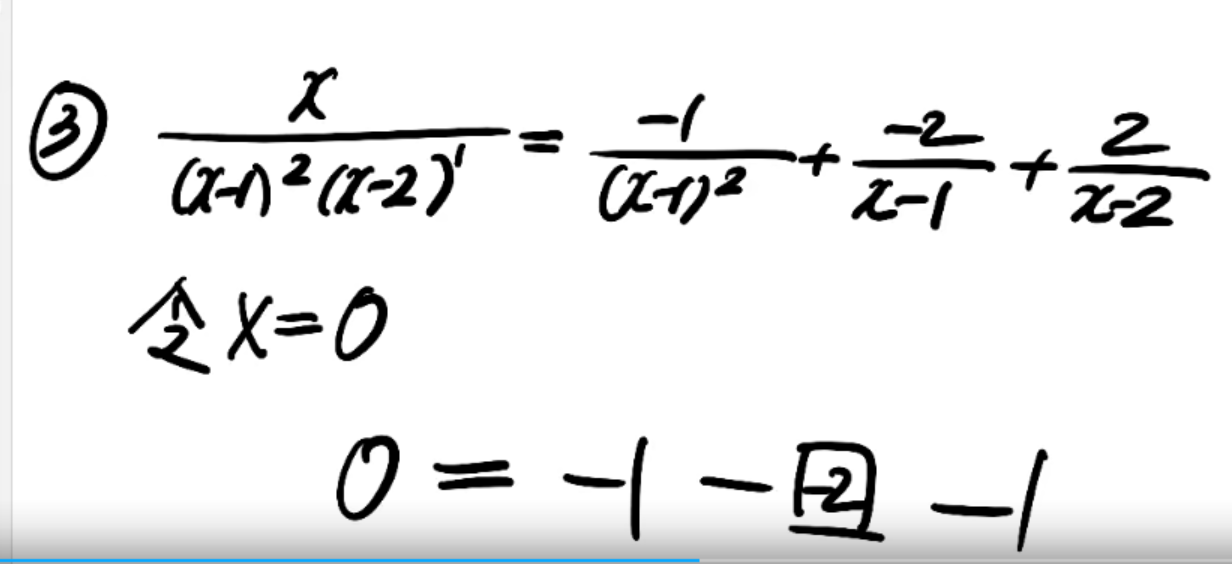 ③ x/((x-1)²(x-2)¹) = -1/(x-1)² + -2/(x-1) + 2/(x-2)
令 x=0
0 = -1 - -2 - 1